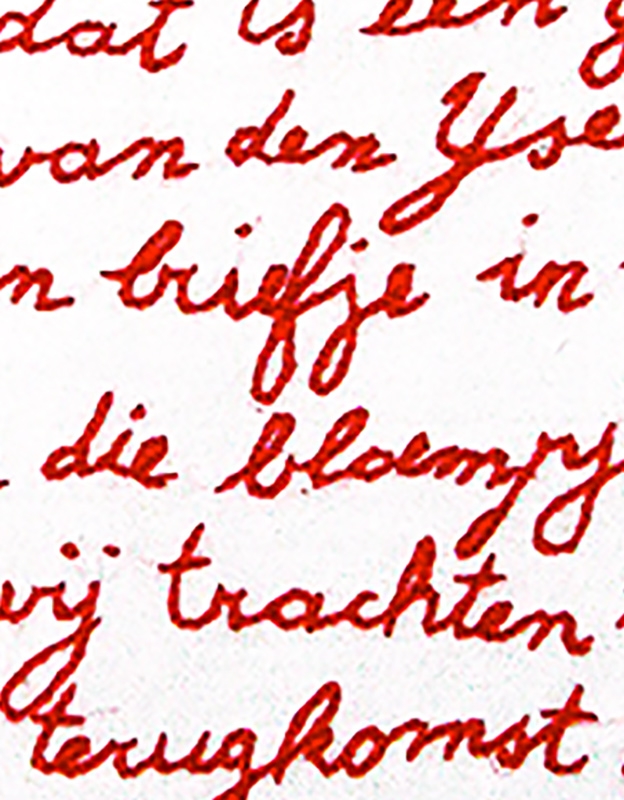 dat is een
van den Yse
n briefje in
die bloempj
wij trachten
terugkomst